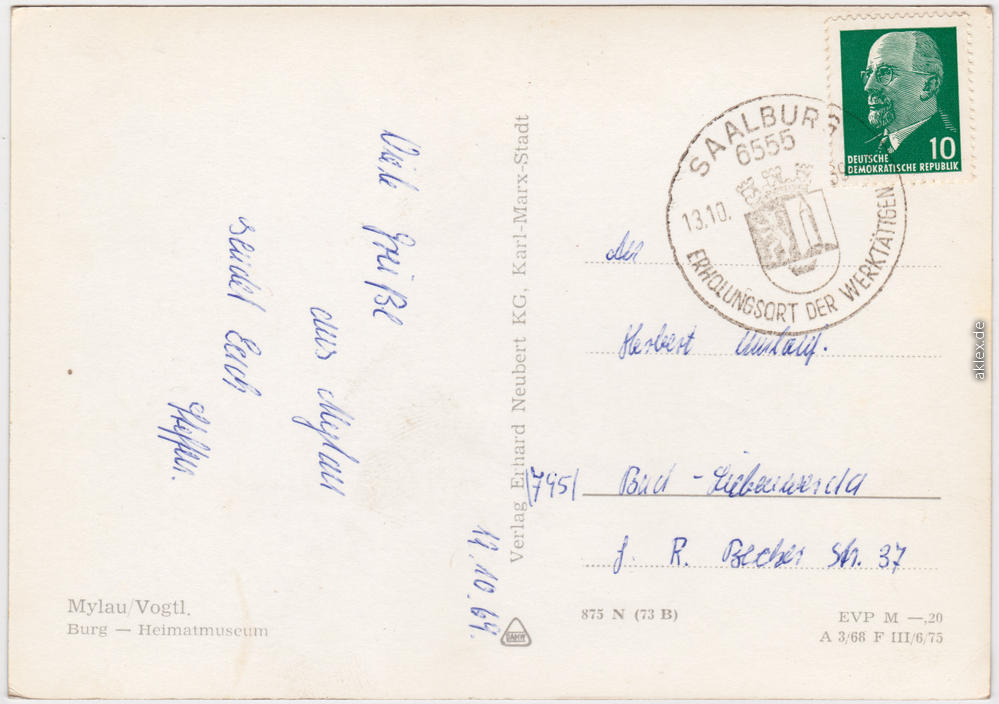 Viele Grüße
aus Mylau
sendet Euch
Steffen.
12.10.69.
Mylau/Vogtl.
Burg — Heimatmuseum
Verlag Erhard Neubert KG, Karl-Marx-Stadt
DEUTSCHE
DEMOKRATISCHE REPUBLIK
10
SAALBURG
6555
13.10.
ERHOLUNGSORT DER WERKTÄTIGEN
Herbert
(795) Bad - Liebenwerda
J. R. Becher Str. 37
875 N (73 B)
EVP M —,20
A 3/68 F III/6/75
aklex.de